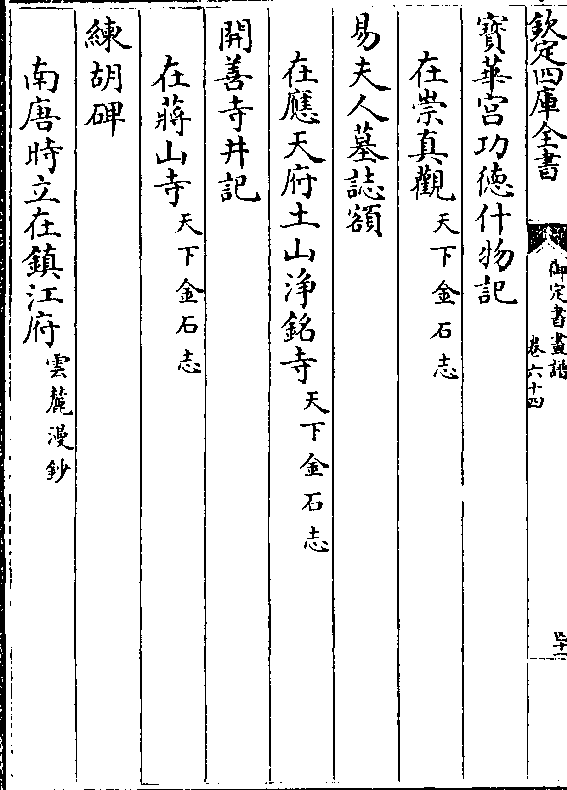 欽定四庫全書
御定書畫譜
卷六十四
四十一
寳華宫功徳什物記
在崇真觀天下金石志
易夫人墓誌額
在應天府土山淨銘寺天下金石志
開善寺井記
在蔣山寺天下金石志
練胡碑
南唐時立在鎮江府雲麓漫鈔